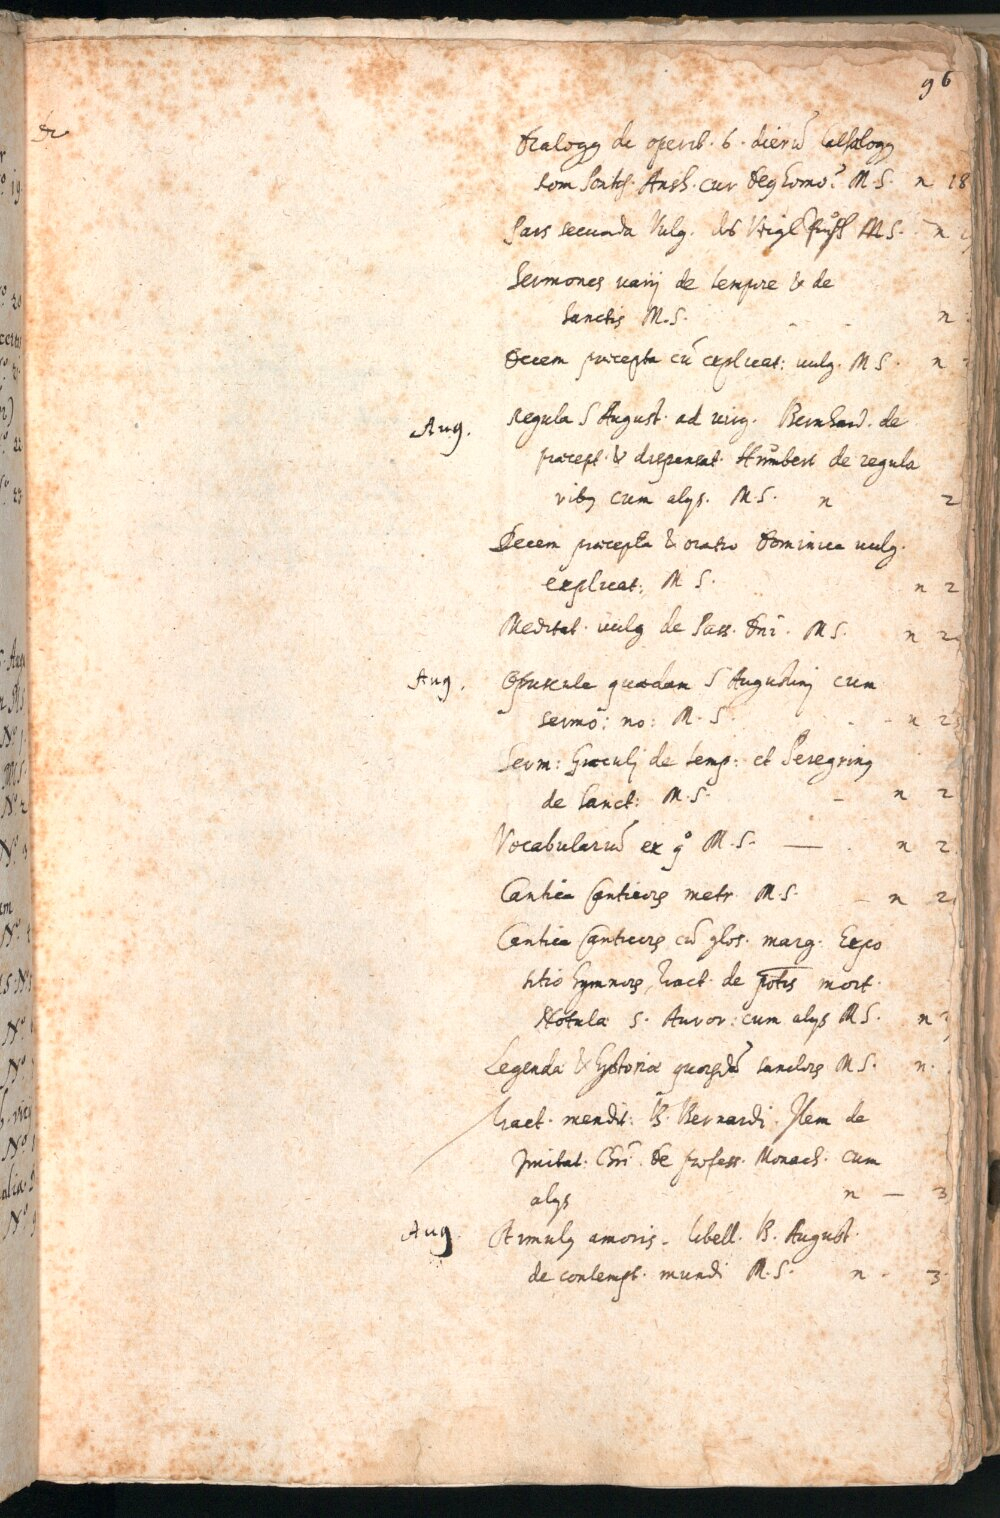 96
Dialogg de operib. 6. dierū Cathalogg
Rom Pontif. Ansh. cur Deg homo? M.S. n 18
Pars secunda Vulg. M.S. n
Sermones varij de tempre & de
Sanctis M.S. n
Decem præcepta cū explicat: vulg. M S. n
Aug. Regula S August. ad virg. Bernhard. de
præcept. & dispensat. Humbert de regula
ribg cum alys. M.S. n 2
Decem præcepta & oratio Dominica vulg.
explicat: M S. n 2
Meditat. vulg de Pass. Dnī. M S. n 2
Aug. Opuscula quædam S Augustinj cum
sermō: no: M. S. n 2
Serm: Graculj de temp: et Peregring
de Sanct: M.S. n 2
Vocabulariū ex q° M.S. n 2
Cantica Canticorȝ metr. M.S. n 2
Cantica Canticorȝ cū glos. marg. Expo
sitio hymnorȝ, tract. de mort.
Notula S. Auror: cum alys M S. n
Legenda & hystoriæ quorȝdā sanctorȝ M S. n.
Tract. mendit: B. Bernardi. Item de
Imitat: Chrī. De profess. Monach. cum
alys n — 3
Aug. Stimulg amoris. libell. B. August.
de contempt. mundi M.S. n - 3